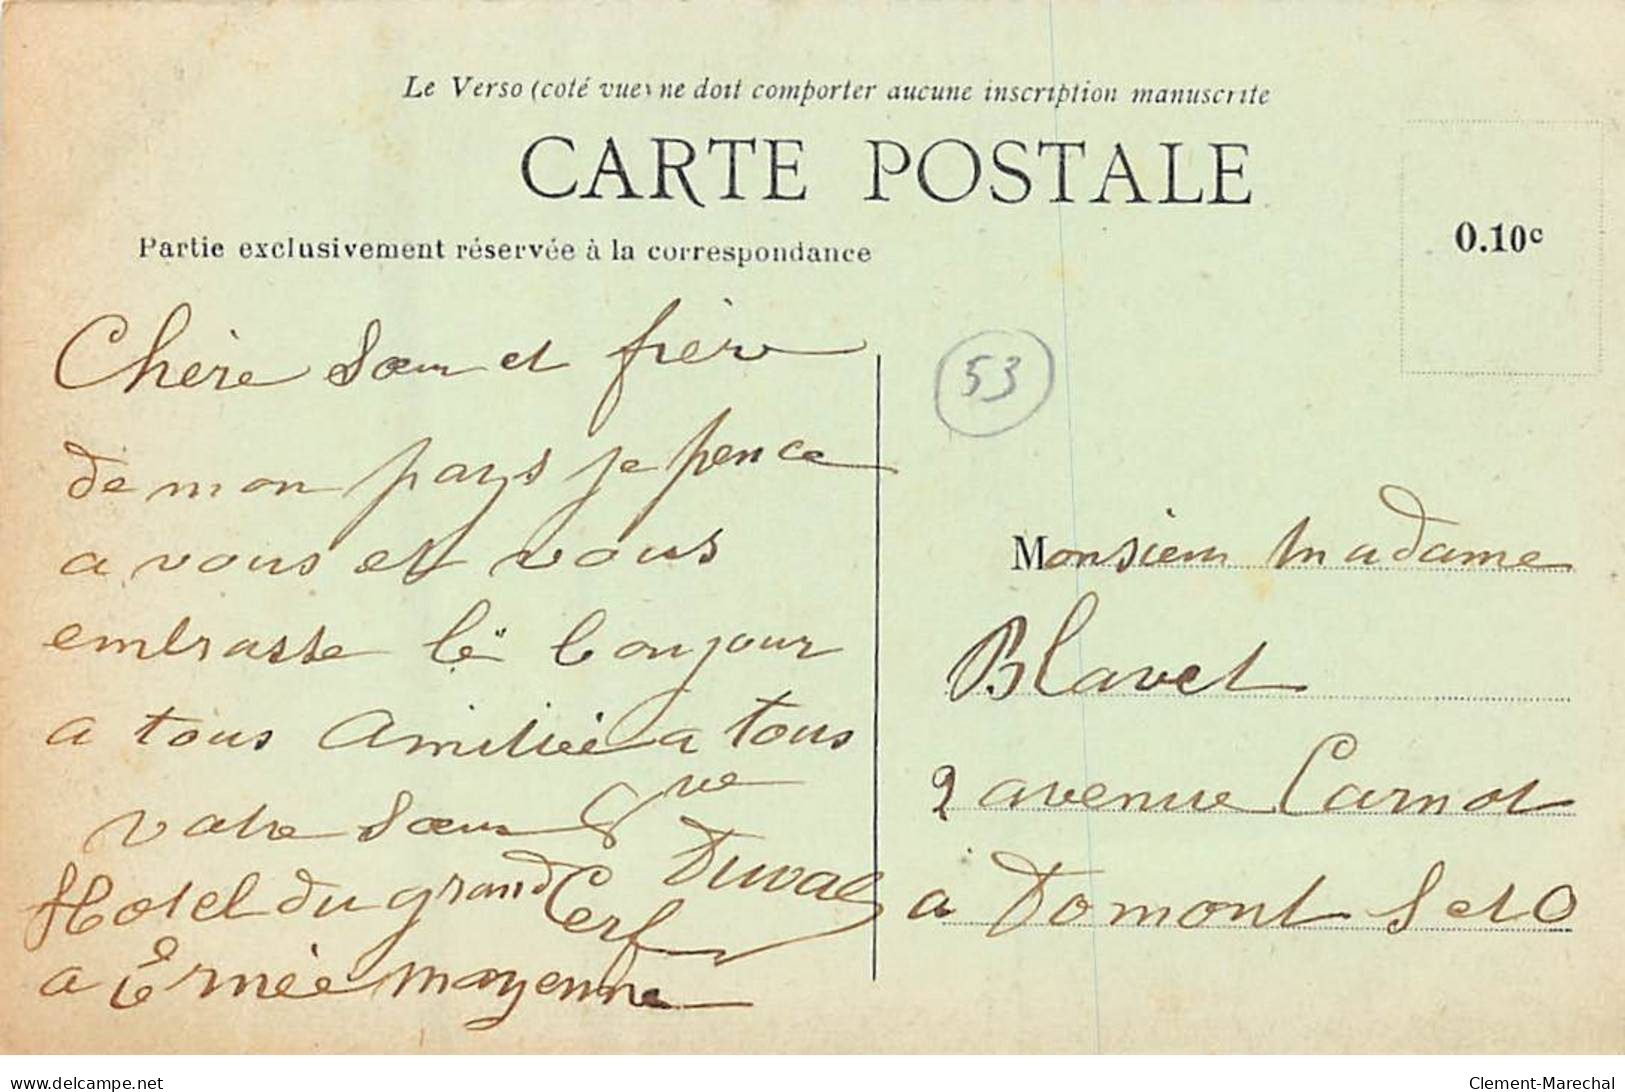 Le Verso (coté vue) ne doit comporter aucune inscription manuscrite
CARTE POSTALE
Partie exclusivement réservée à la correspondance
0.10c
53
Chère Sœur et frère
de mon pays je pence
a vous et vous
embrasse le bonjour
a tous amitiée a tous
votre Sœur Vve
Duval
Hotel du grand Cerf
a Ernée mayenne
Monsieur madame
Blavet
2 avenue Carnot
a Domont S et O
delcampe.net
Clement-Marechal